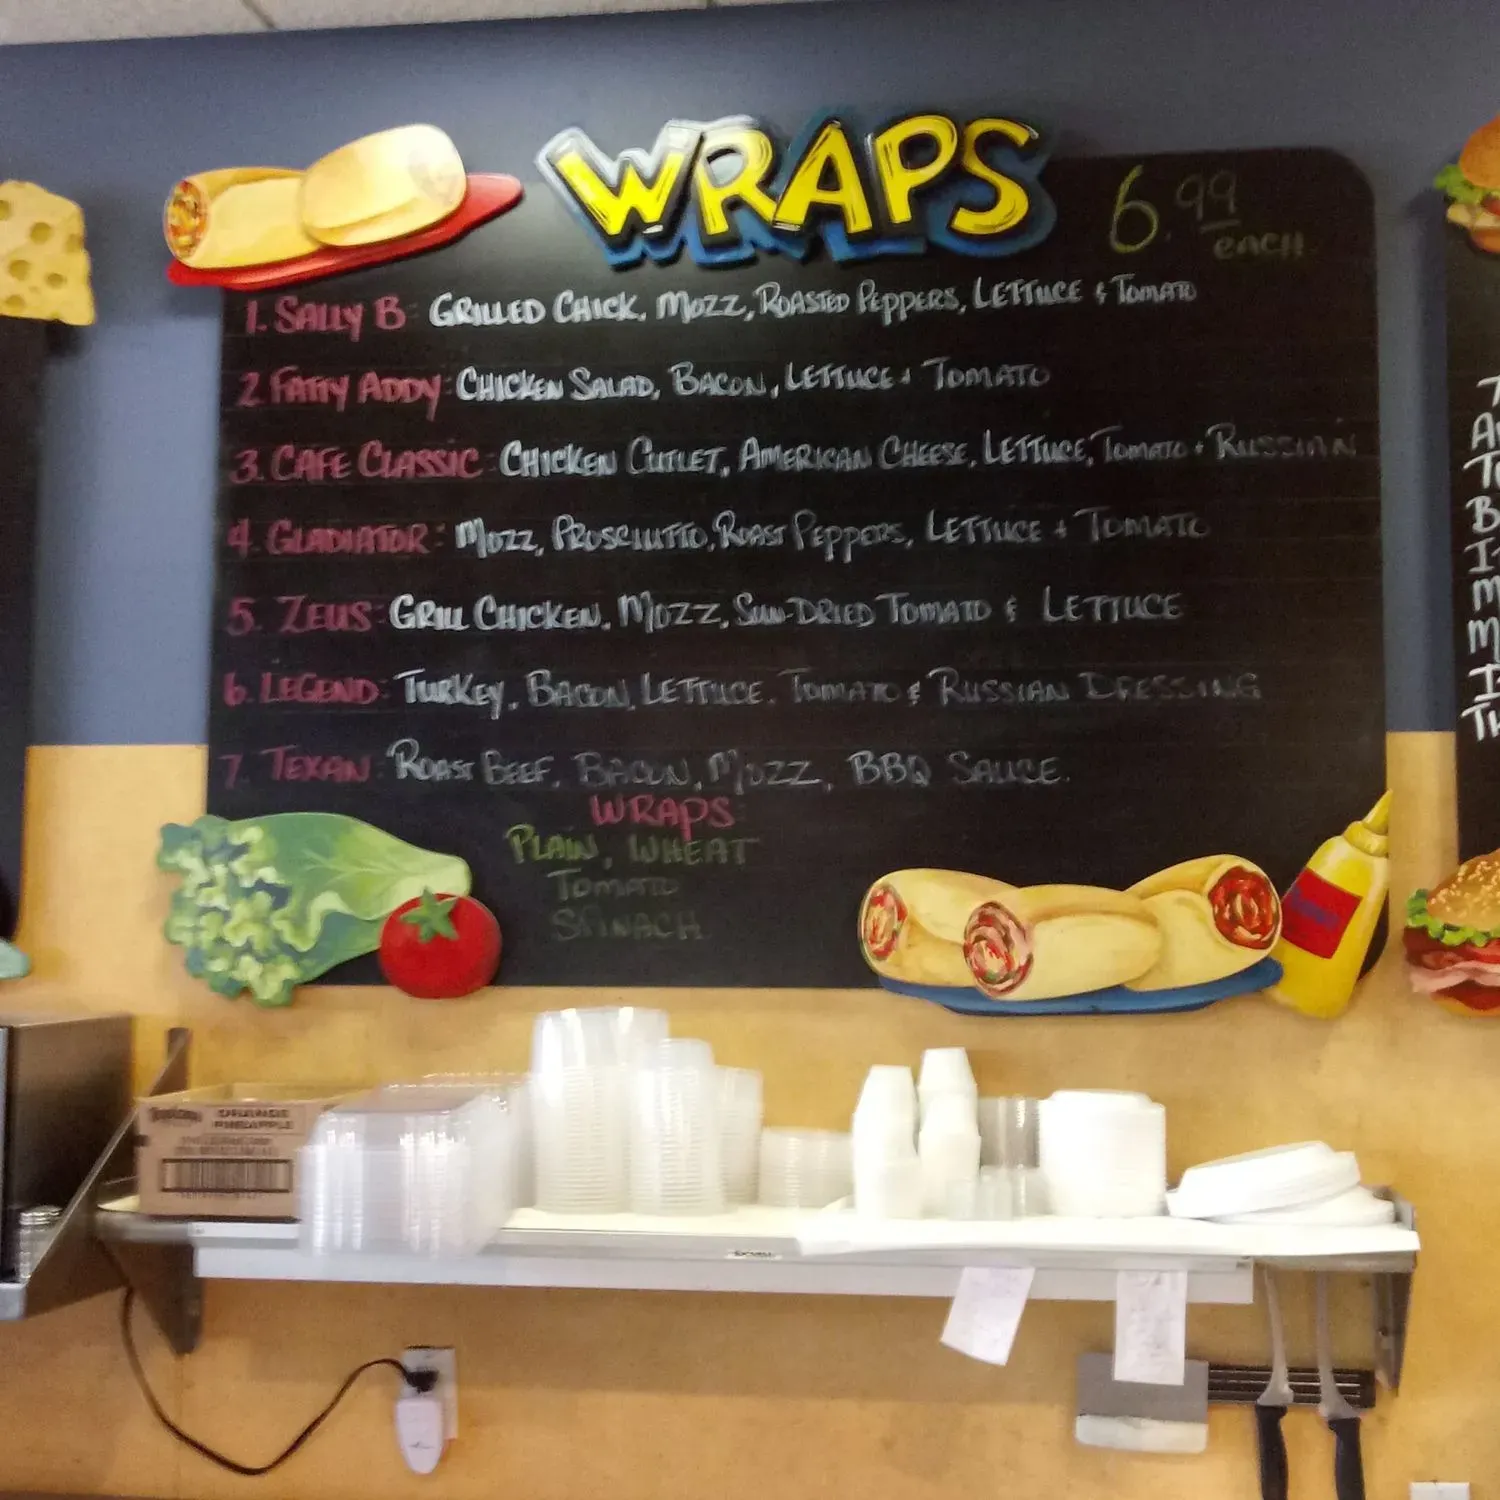 WRAPS 6.99
EACH
1. SALLY B: GRILLED CHICK, MOZZ, ROASTED PEPPERS, LETTUCE & TOMATO
2. FATTY ADDY: CHICKEN SALAD, BACON, LETTUCE + TOMATO
3. CAFE CLASSIC: CHICKEN CUTLET, AMERICAN CHEESE, LETTUCE, TOMATO + RUSSIAN
4. GLADIATOR: MOZZ, PROSCIUTTO, ROAST PEPPERS, LETTUCE + TOMATO
5. ZEUS: GRILL CHICKEN, MOZZ, SUN-DRIED TOMATO & LETTUCE
6. LEGEND: TURKEY, BACON, LETTUCE, TOMATO & RUSSIAN DRESSING
7. TEXAN: ROAST BEEF, BACON, MOZZ, BBQ SAUCE.
WRAPS:
PLAIN, WHEAT
TOMATO
SPINACH
ORANGE
PINEAPPLE